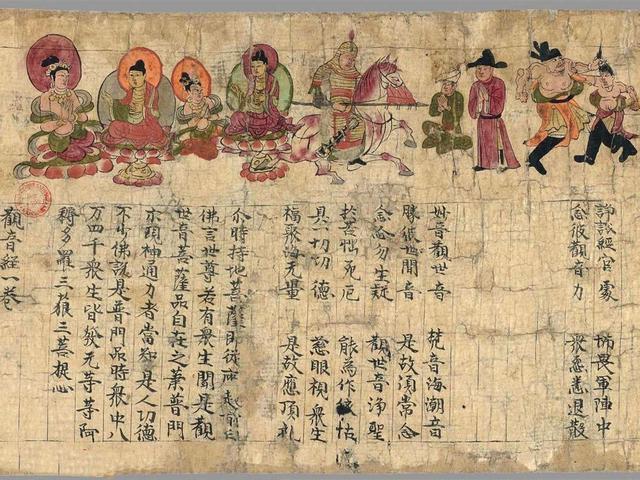 諍訟經官處 怖畏軍陣中
念彼觀音力 衆怨悉退散
妙音觀世音 梵音海潮音
勝彼世間音 是故須常念
念念勿生疑 觀世音淨聖
於苦惱死厄 能為作依怙
具一切功德 慈眼視衆生
福聚海无量 是故應頂礼
尒時持地菩薩即從座起前白
佛言世尊若有衆生聞是觀
世音菩薩品自在之業普門
示現神通力者當知是人功德
不少佛說是普門品時衆中八
万四千衆生皆發无等等阿
耨多羅三藐三菩提心
觀音經一卷